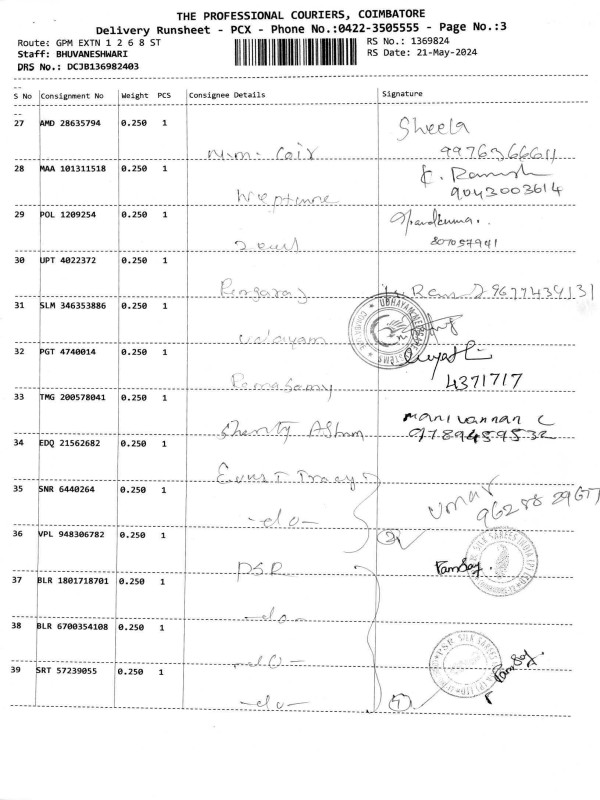 THE PROFESSIONAL COURIERS, COIMBATORE
Delivery Runsheet - PCX - Phone No.:0422-3505555 - Page No.:3
Route: GPM EXTN 1 2 6 8 ST
RS No.: 1369824
Staff: BHUVANESHWARI
RS Date: 21-May-2024
DRS No.: DCJB136982403
S No Consignment No Weight PCS Consignee Details Signature
27 AMD 28635794 0.250 1 Sheela
9976366611
28 MAA 101311518 0.250 1 K. Ramesh
Neptune 9043003614
29 POL 1209254 0.250 1
807057941
30 UPT 4022372 0.250 1
Rengaraj 9677434131
31 SLM 346353886 0.250 1
Udayam
32 PGT 4740014 0.250 1
Ramasamy 4371717
33 TMG 200578041 0.250 1 Manivannan C
9789459532
34 EDQ 21562682 0.250 1
35 SNR 6440264 0.250 1 Umar
-do-
36 VPL 948306782 0.250 1
PSR
37 BLR 1801718701 0.250 1
-do-
38 BLR 6700354108 0.250 1
-do-
39 SRT 57239055 0.250 1
-do- 4